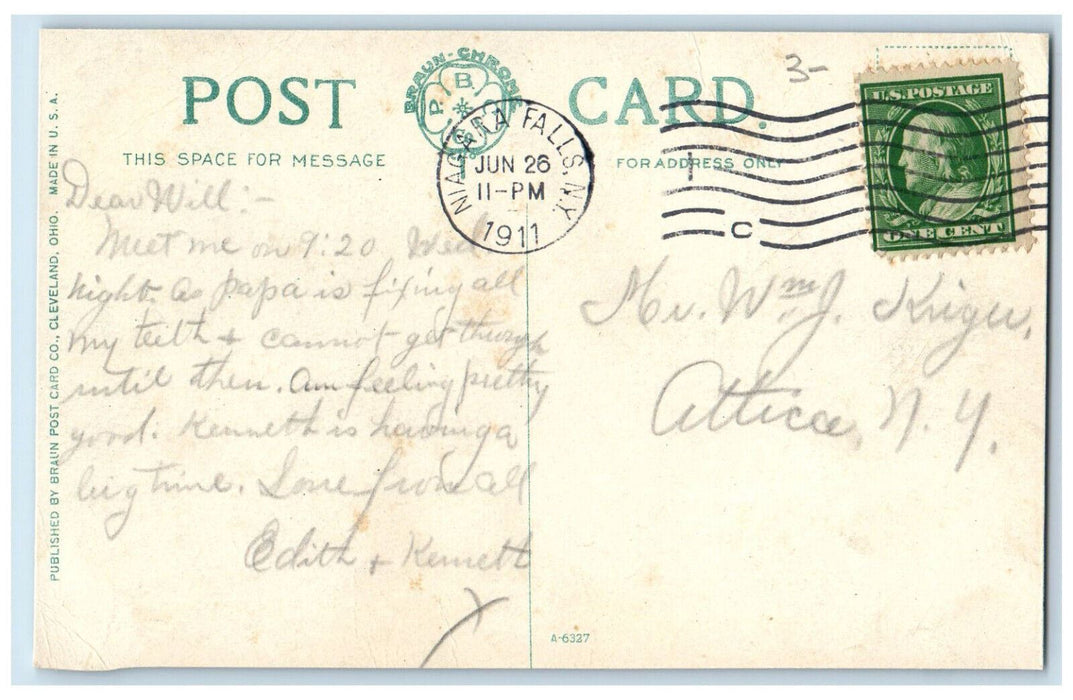 POST CARD.
BRAUN-CHROME
P. B.
THIS SPACE FOR MESSAGE
FOR ADDRESS ONLY
3-
NIAGARA FALLS, N.Y.
JUN 26
11-PM
1911
C
U.S. POSTAGE
ONE CENT
Dear Will:-
Meet me on 9:20 Wed.
night. As papa is fixing all
my teeth + cannot get through
until then. Am feeling pretty
good. Kenneth is having a
big time. Love from all
Edith + Kenneth
X
Mr. Wm. J. Kriger,
Attica, N. Y.
A-6327
PUBLISHED BY BRAUN POST CARD CO., CLEVELAND, OHIO. MADE IN U. S. A.